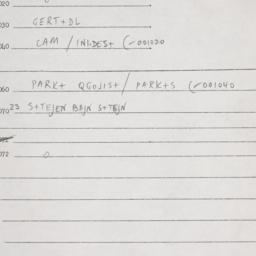 020
030 GERT+DL
040 CAM / INLDES+ (-001020
060 PARK+ QGOJIST/ PARK+S (-001040
070 23 S+TEJEN BDJN S+TEJN
072